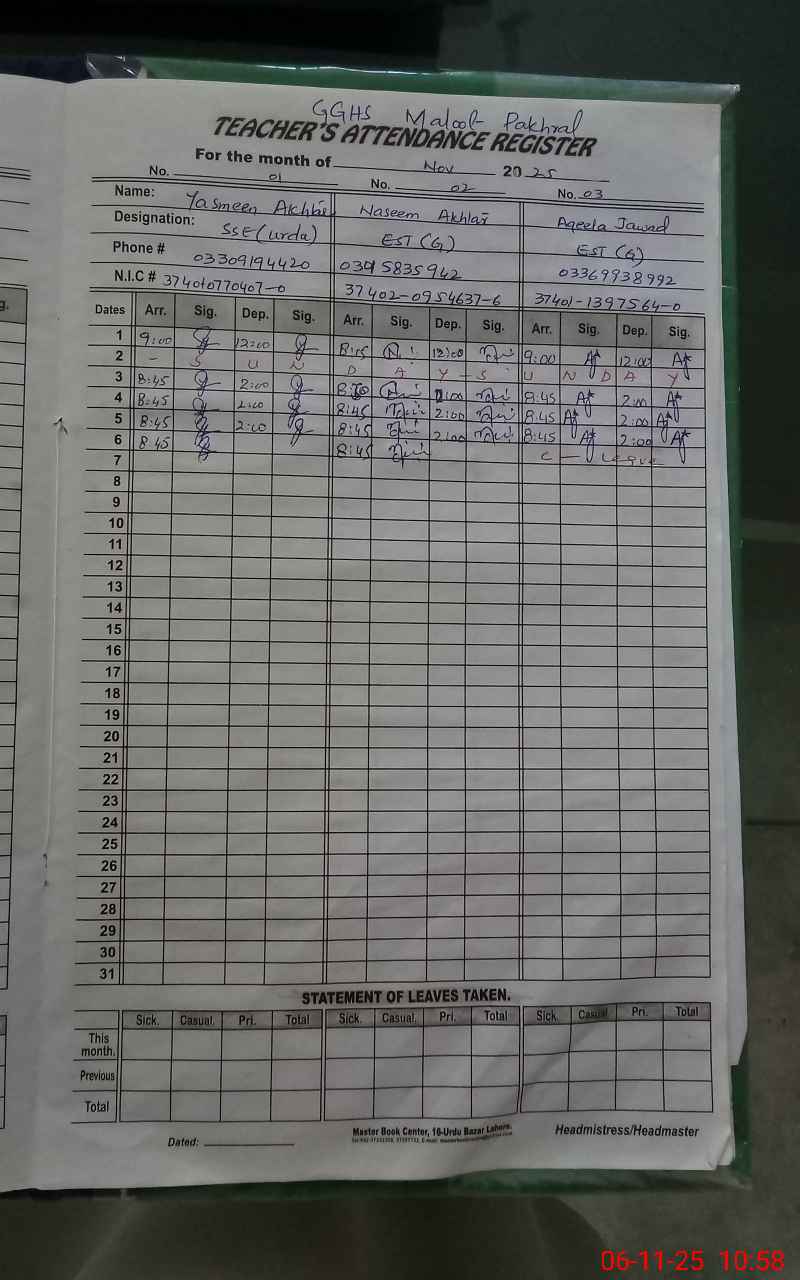 GGHS Malool Pakhral
TEACHER'S ATTENDANCE REGISTER
For the month of Nov 2025
No. 01 No. 02 No. 03
Name: Yasmeen Akhtar Naseem Akhtar Aqeela Jawad
Designation: SSE(urdu) EST (G) EST (G)
Phone # 03309194420 03015835942 03369938992
N.I.C # 374010770407-0 37402-0954637-6 37401-1397564-0
Dates Arr. Sig. Dep. Sig. Arr. Sig. Dep. Sig. Arr. Sig. Dep. Sig.
1 9:00 12:00 8:45 12:00 9:00 12:00
2 - S U N D A Y - S U N D A Y
3 8:45 2:00 8:50 2:00 8:45 2:00
4 8:45 2:00 8:45 2:00 8:45 2:00
5 8:45 2:00 8:45 2:00 8:45 2:00
6 8:45 8:45 C - Leave
7
8
9
10
11
12
13
14
15
16
17
18
19
20
21
22
23
24
25
26
27
28
29
30
31
STATEMENT OF LEAVES TAKEN.
Sick. Casual. Pri. Total Sick. Casual. Pri. Total Sick. Casual Pri. Total
This month.
Previous
Total
Dated:
Master Book Center, 16-Urdu Bazar Lahore.
Headmistress/Headmaster
06-11-25 10:58